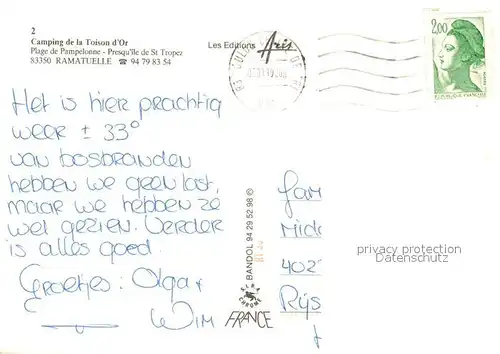 2
Camping de la Toison d'Or
Plage de Pampelonne - Presqu'île de St Tropez
83350 RAMATUELLE ☎ 94 79 83 54
Les Editions Aris
2,00
Het is hier prachtig
weer ± 33°
van bosbranden
hebben we geen last,
maar we hebben ze
wel gezien. Verder
is alles goed.
Groetjes: Olga +
Wim
BANDOL 94 29 52 98 ©
FRANCE
Fam
Midd
402
Rijs
privacy protection
Datenschutz